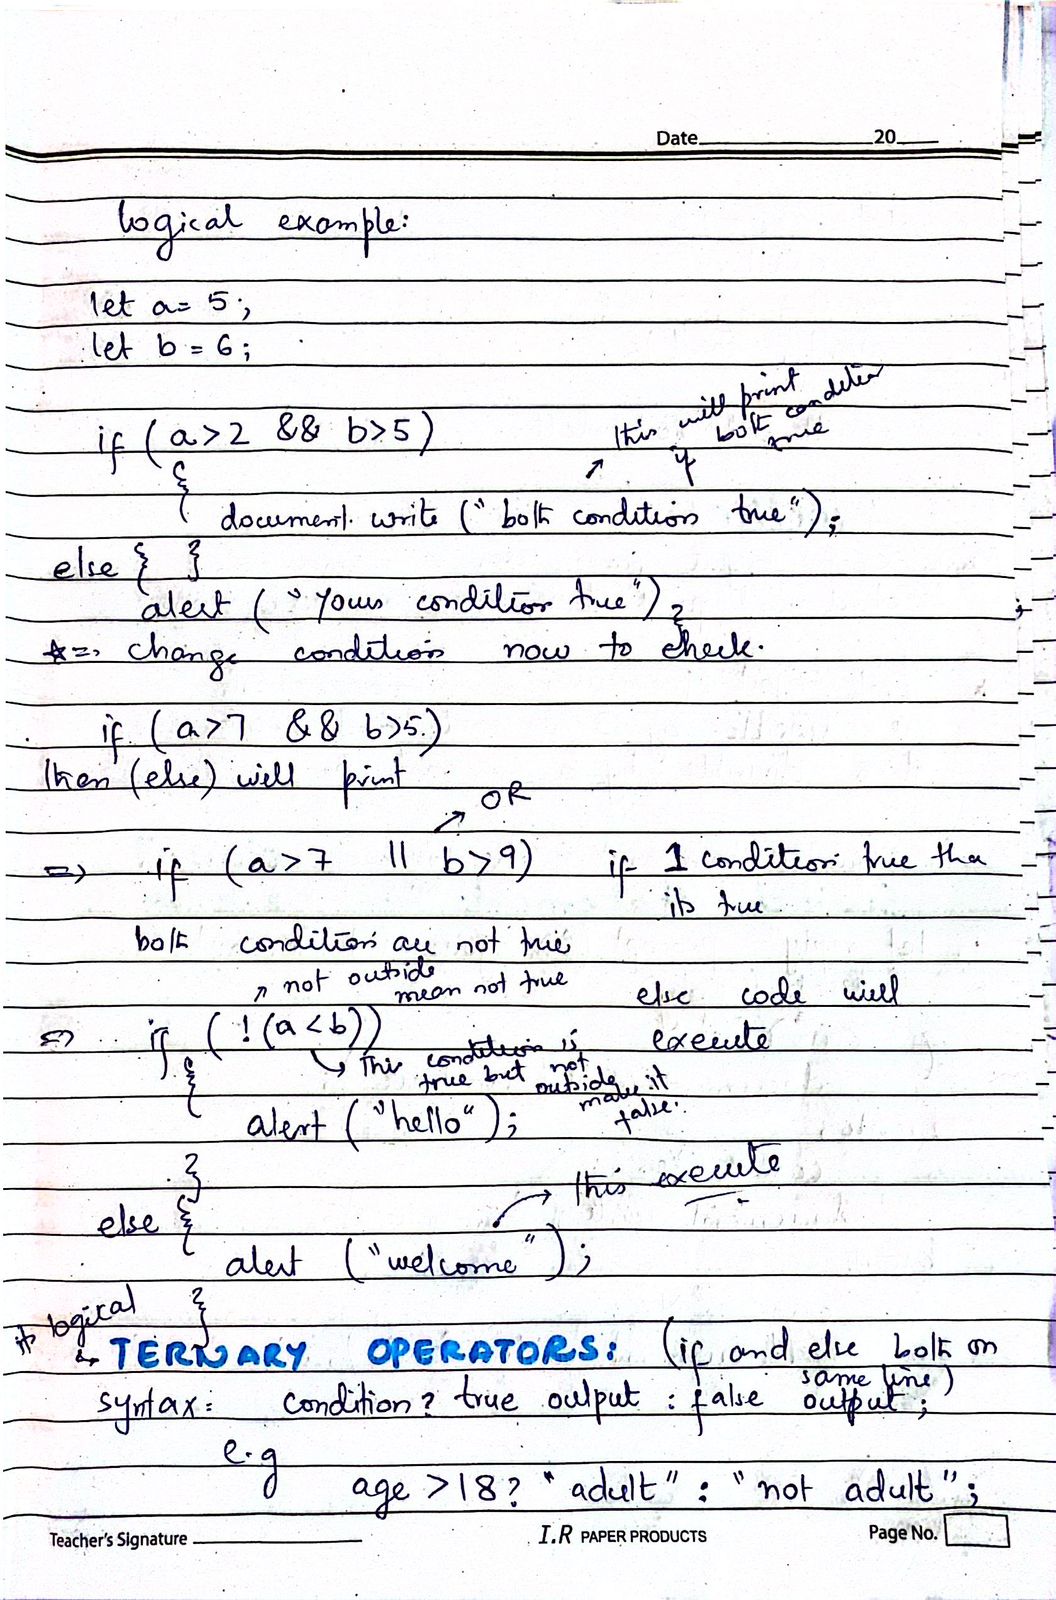 Date 20
logical example:
let a= 5;
let b = 6;
if (a>2 && b>5)
this will print
if both condition
true
{
document. write (" both condition true");
else { }
alert ("Your condition true") }
*=> change condition now to check.
if (a>7 && b>5)
then (else) will print
OR
=> if (a>7 || b>9) if 1 condition true tha
its true
both condition are not true
not outside
mean not true
else code will
=> if (!(a<b)) execute
This condition is
true but not
outside
make it
false.
{
alert ("hello");
}
this execute
else {
alert ("welcome");
}
its logical
TERNARY OPERATORS: (if and else both on
same line)
syntax: condition? true output : false output;
e.g
age >18? "adult" : "not adult";
Teacher's Signature I.R PAPER PRODUCTS Page No.